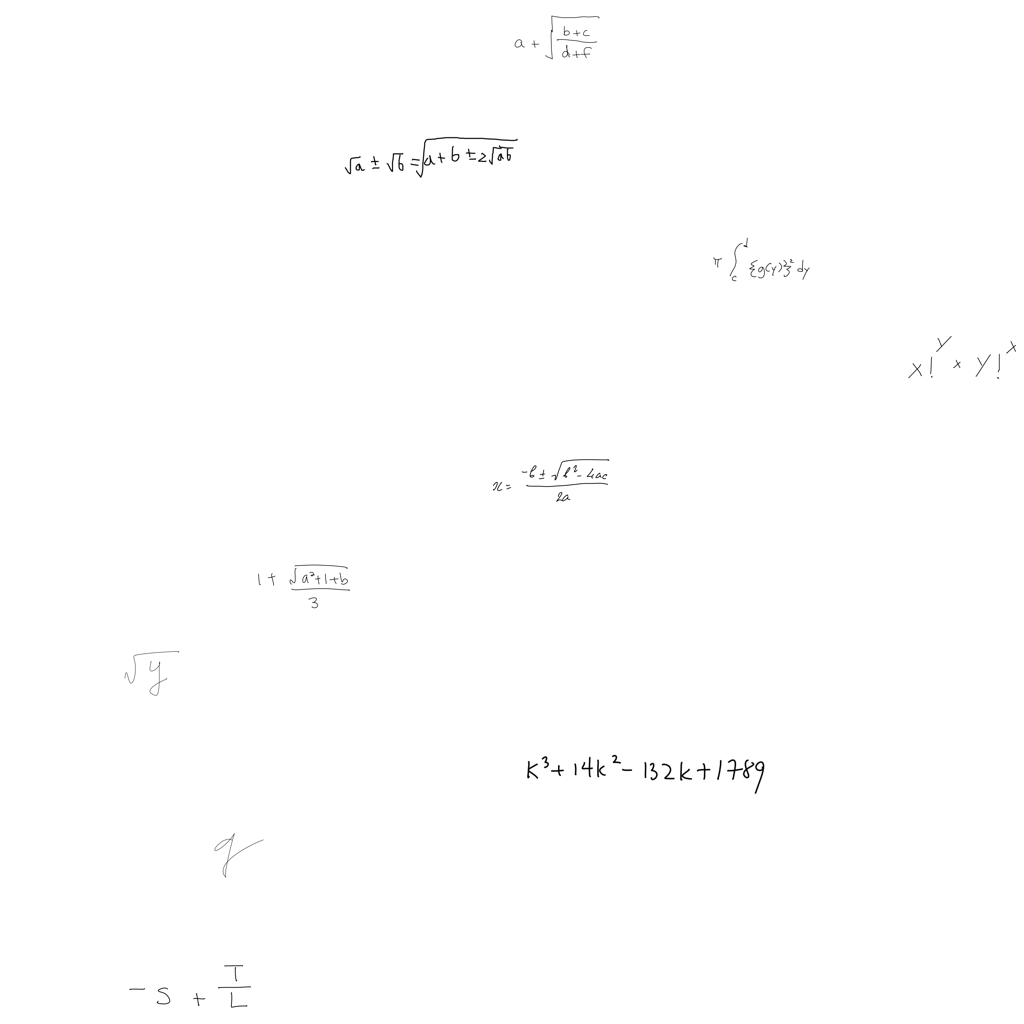 a + \sqrt{\frac{b+c}{d+f}}
\sqrt{a} ± \sqrt{b} = \sqrt{a+b±2\sqrt{ab}}
π \int_{c}^{d} \{g(y)\}^{2} dy
x!^{y} × y!^{x}
x = \frac{-b ± \sqrt{b^{2}-4ac}}{2a}
1 + \frac{\sqrt{a^{2}+1+b}}{3}
\sqrt{y}
k^{3}+14k^{2}-132k+1789
q
-s + \frac{T}{L}